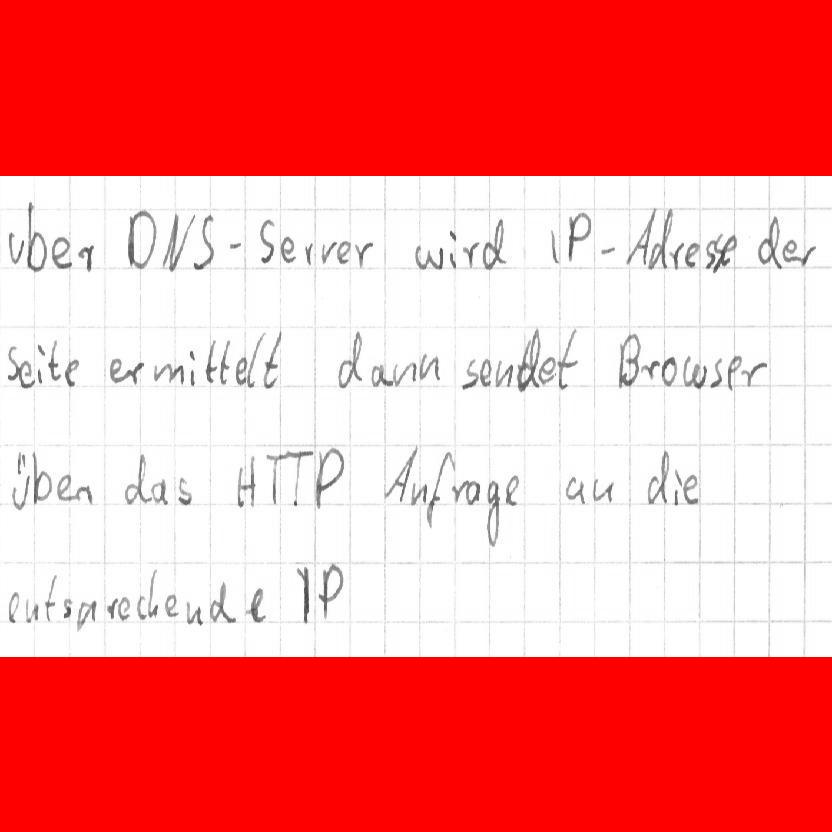 über DNS-Server wird IP-Adresse der
Seite ermittelt dann sendet Browser
über das HTTP Anfrage an die
entsprechende IP